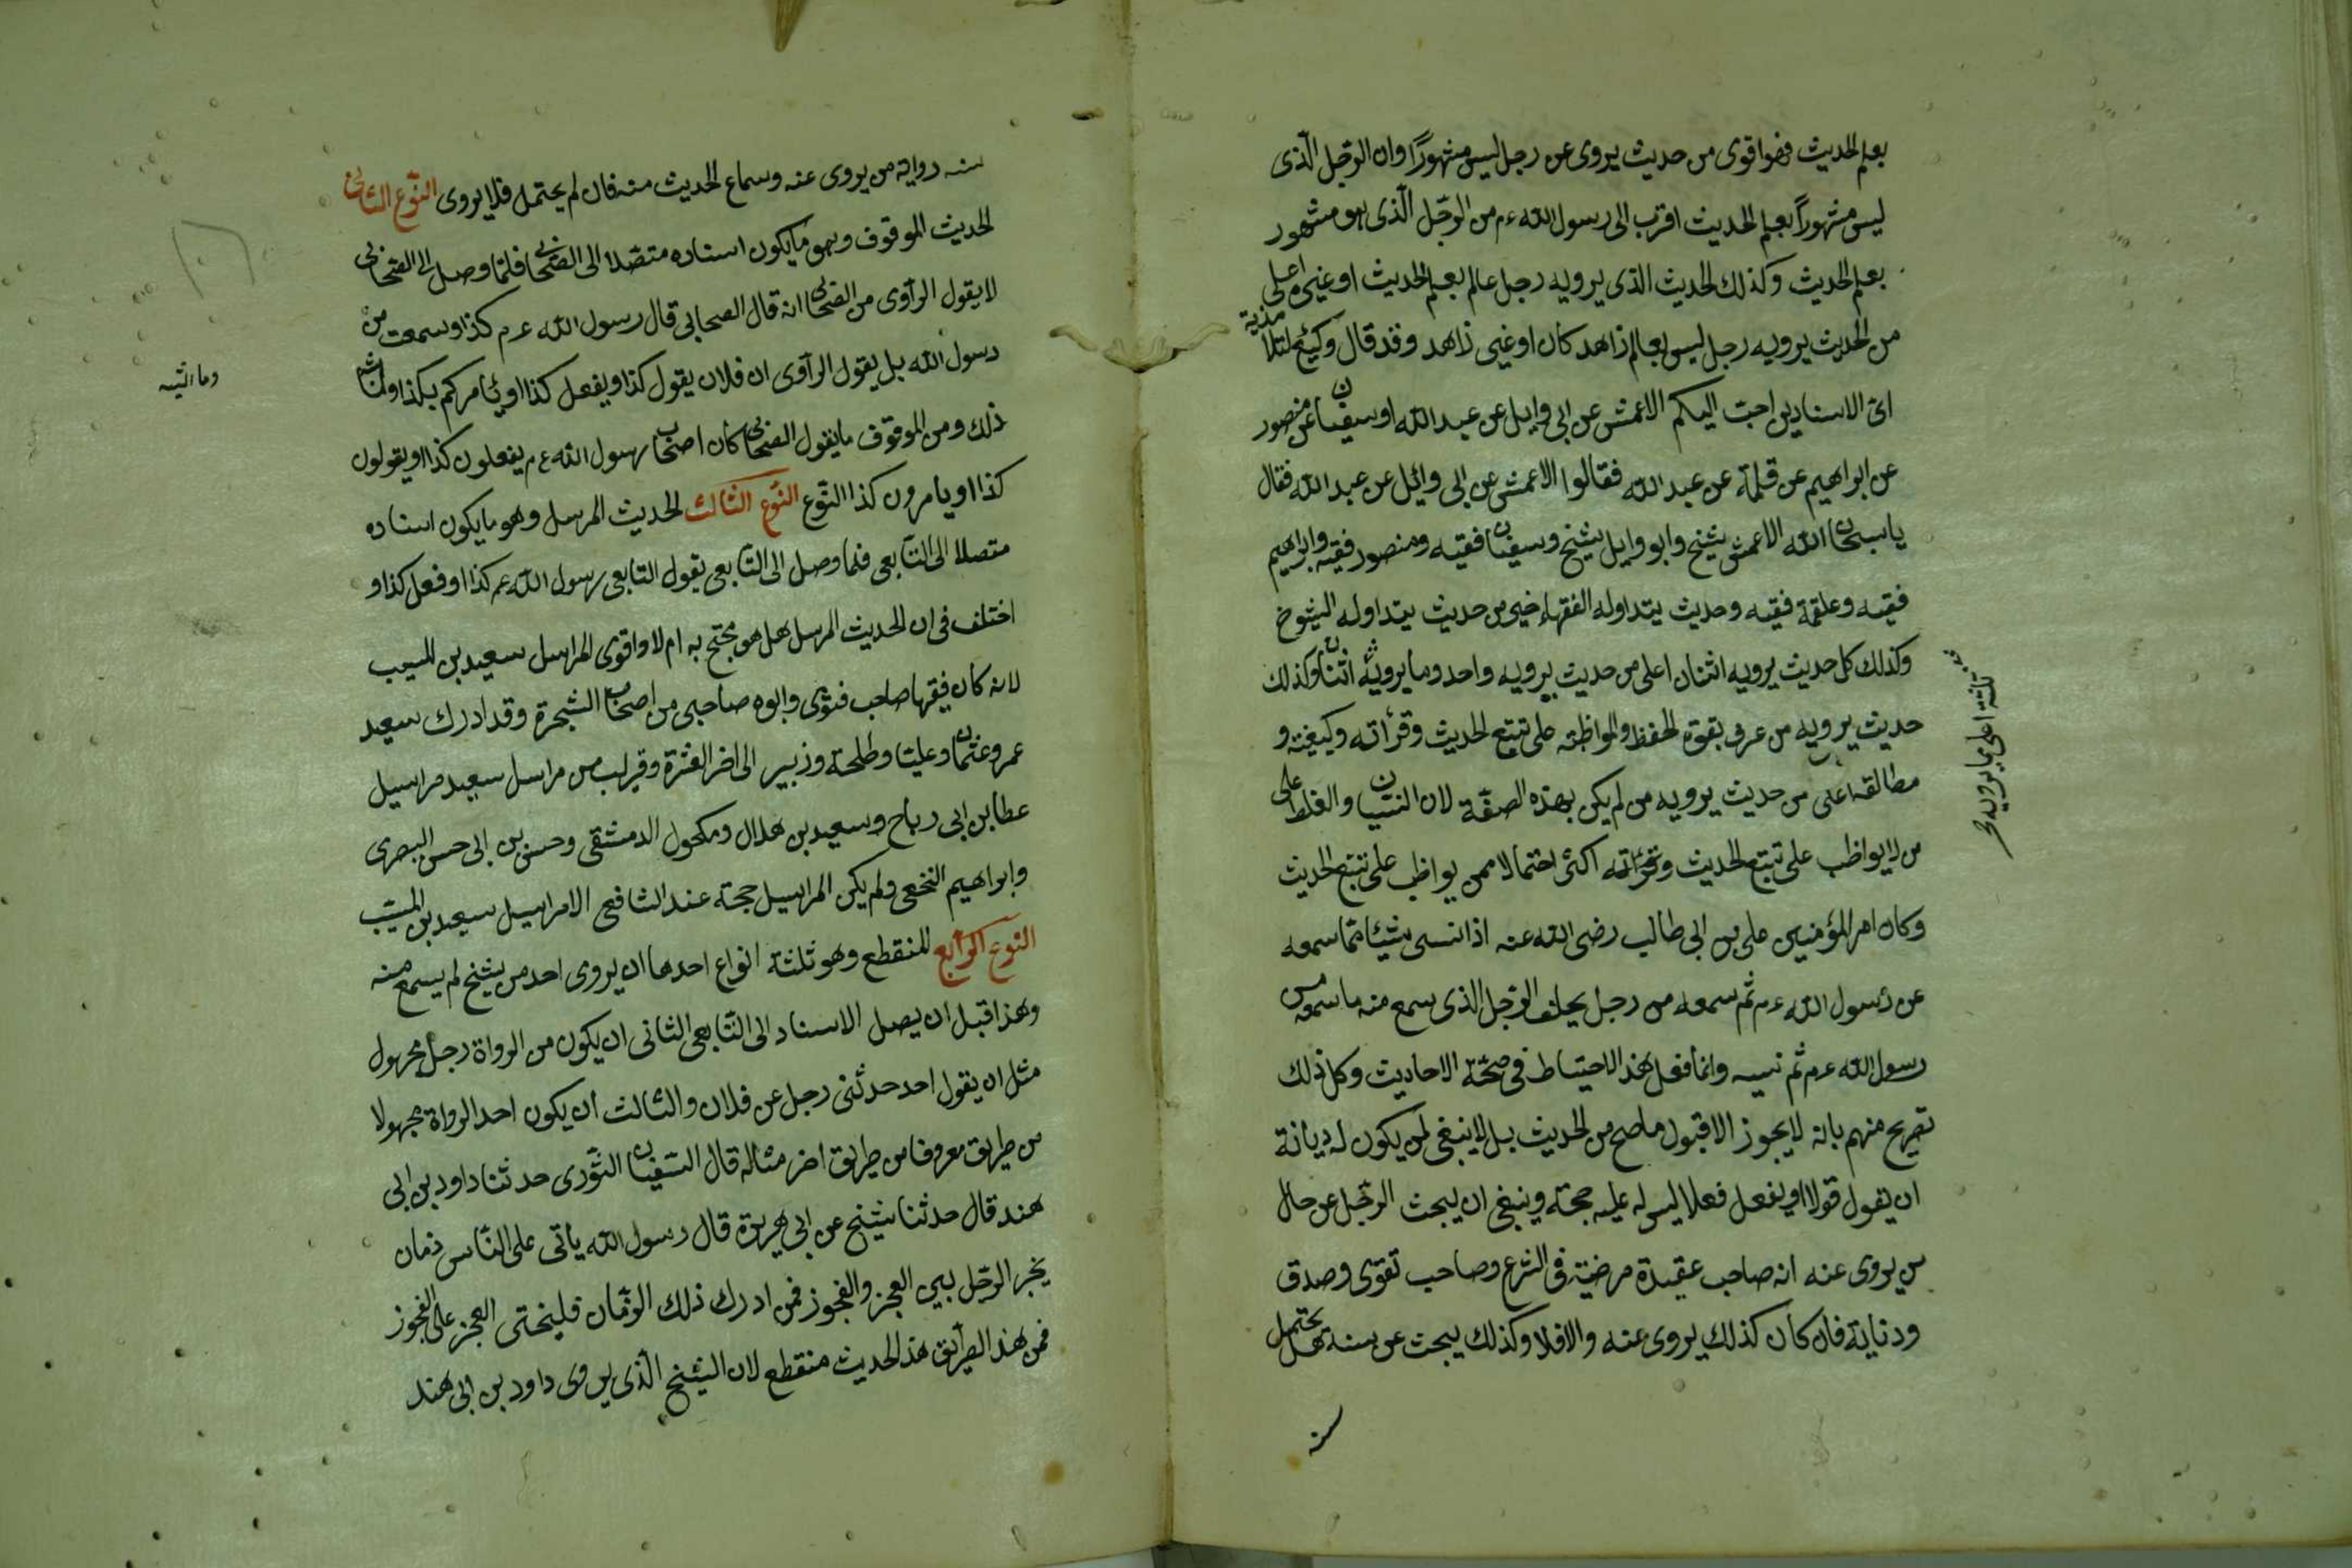 بعلم الحديث فهو اقوى من حديث يروى عن رجل ليس مشهورًا وان الرجل الذى
ليس مشهورًا بعلم الحديث اقرب الى رسول الله ءم من الرجل الذى هو مشهور
بعلم الحديث وكذلك الحديث الذى يرويه رجل عالم بعلم الحديث او غيره اعلى
من الحديث يرويه رجل ليس بعالم زاهد كان او غير زاهد وقد قال وكيع لتلامذية
اىّ الاسنادين احب اليكم الاعمش عن ابى وايل عن عبد الله او سفيان عن منصور
عن ابراهيم عن علقمة عن عبد الله فقالوا الاعمش عن ابى وائل عن عبد الله فقال
يا سبحان الله الاعمش شيخ وابو وايل شيخ وسفيان فقيه ومنصور فقيه وابراهيم
فقيه وعلقمة فقيه وحديث يتداوله الفقهاء خير من حديث يتداوله الشيوخ
وكذلك كل حديث يرويه اثنان اعلى من حديث يرويه واحد وما يرويه اثنان وكذلك
ثلثة اعلى مما يرويه
حديث يرويه من عرف بقوة الحفظ والمواظبة على تتبع الحديث وقرأته وكيفيته و
مطالقه اعلى من حديث يرويه من لم يكن بهذه الصفة لان النسيان والغلط على
من لا يواظب على تتبع الحديث وقرائته اكثر احتمالا ممن يواظب على تتبع الحديث
وكان امر المؤمنين على بن ابى طالب رضى الله عنه اذا نسى شيئا مما سمعه
عن رسول الله ءم ثم سمعه من رجل يحلف الرجل الذى سمع منه ما سمعه من
رسول الله ءم ثم نسيه وانما فعل هذا الاحتياط فى صحّة الاحاديث وكل ذلك
تصريح منهم بانه لا يجوز الا قبول ما صح من الحديث بل لا ينبغى لمن يكون له ديانة
ان يقول قولا او يفعل فعلا ليس له عليه حجة وينبغى ان يبحث الرجل عن حال
من يروى عنه انه صاحب عقيدة مرضية فى الشرع وصاحب تقوى وصدق
ودناية فان كان كذلك يروى عنه والا فلا وكذلك يبحث عن سنة هل يحتمل
سنه
سنه رواية من يروى عنه وسماع الحديث منه فان لم يحتمل فلا يروى النوع الثانى
الحديث الموقوف وهو ما يكون اسناده متصلا الى الصحابى فلما وصل الى الصحابى
لا يقول الراوى من الصحابى انه قال الصحابى قال رسول الله ءم كذا وسمعت من
رسول الله بل يقول الراوى ان فلان يقول كذا ويفعل كذا او يئامركم بكذا
وما اشبه
ذلك ومن الموقوف ما يقول الصحابى كان اصحاب رسول الله ءم يفعلون كذا او يقولون
كذا او يامرون كذا النوع النوع الثالث الحديث المرسل وهو ما يكون اسناده
متصلا الى التابعى فلما وصل الى التابعى يقول التابعى رسول الله ءم كذا او فعل كذا و
اختلف فى ان الحديث المرسل هل هو محتج به ام لا واقوى المراسل سعيد بن المسيب
لانه كان فقيها صاحب فتوى وابوه صاحبى من اصحاب الشجرة وقد ادرك سعيد
عمر وعثمان وعليّا وطلحة وزبير الى اخر العشرة وقريب من مراسل سعيد مراسيل
عطا بن ابى رباح وسعيد بن هلال ومكحول الدمشقى وحسن بن ابى حسن البصرى
وابراهيم النخعى ولم يكن المراسيل حجة عند الشافعى الا مراسيل سعيد بن المسيّب
النوع الرابع المنقطع وهو ثلثة انواع احدها ان يروى احد من شيخ لم يسمع منه
وهذا قبل ان يصل الاسناد الى التابعى الثانى ان يكون من الرواة رجل مجهول
مثل ان يقول احد حدثنى رجل عن فلان والثالث ان يكون احد الرواة مجهولا
من طريق معروفا من طريق اخر مثاله قال السفيان الثورى حدثنا داود بن ابى
هند قال حدثنا شيخ عن ابى هريرة قال رسول الله يأتى على الناس زمان
يخير الرجل بين العجز والفجوز فمن ادرك ذلك الزمان فليختر العجز على الفجوز
فمن هذا الطريق هذا الحديث منقطع لان الشيخ الذى يروى داود بن ابى هند